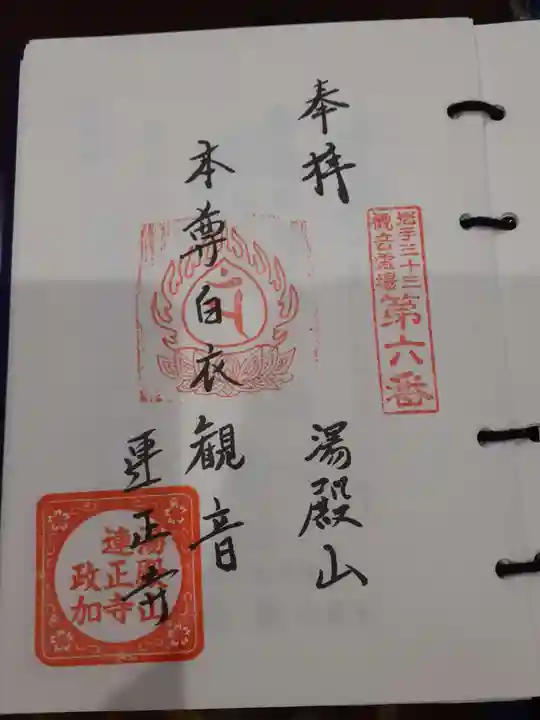 岩手三十三
観音霊場
第六番
奉拝
湯殿山
本尊白衣観音
連正寺
湯殿山
連正寺
政加